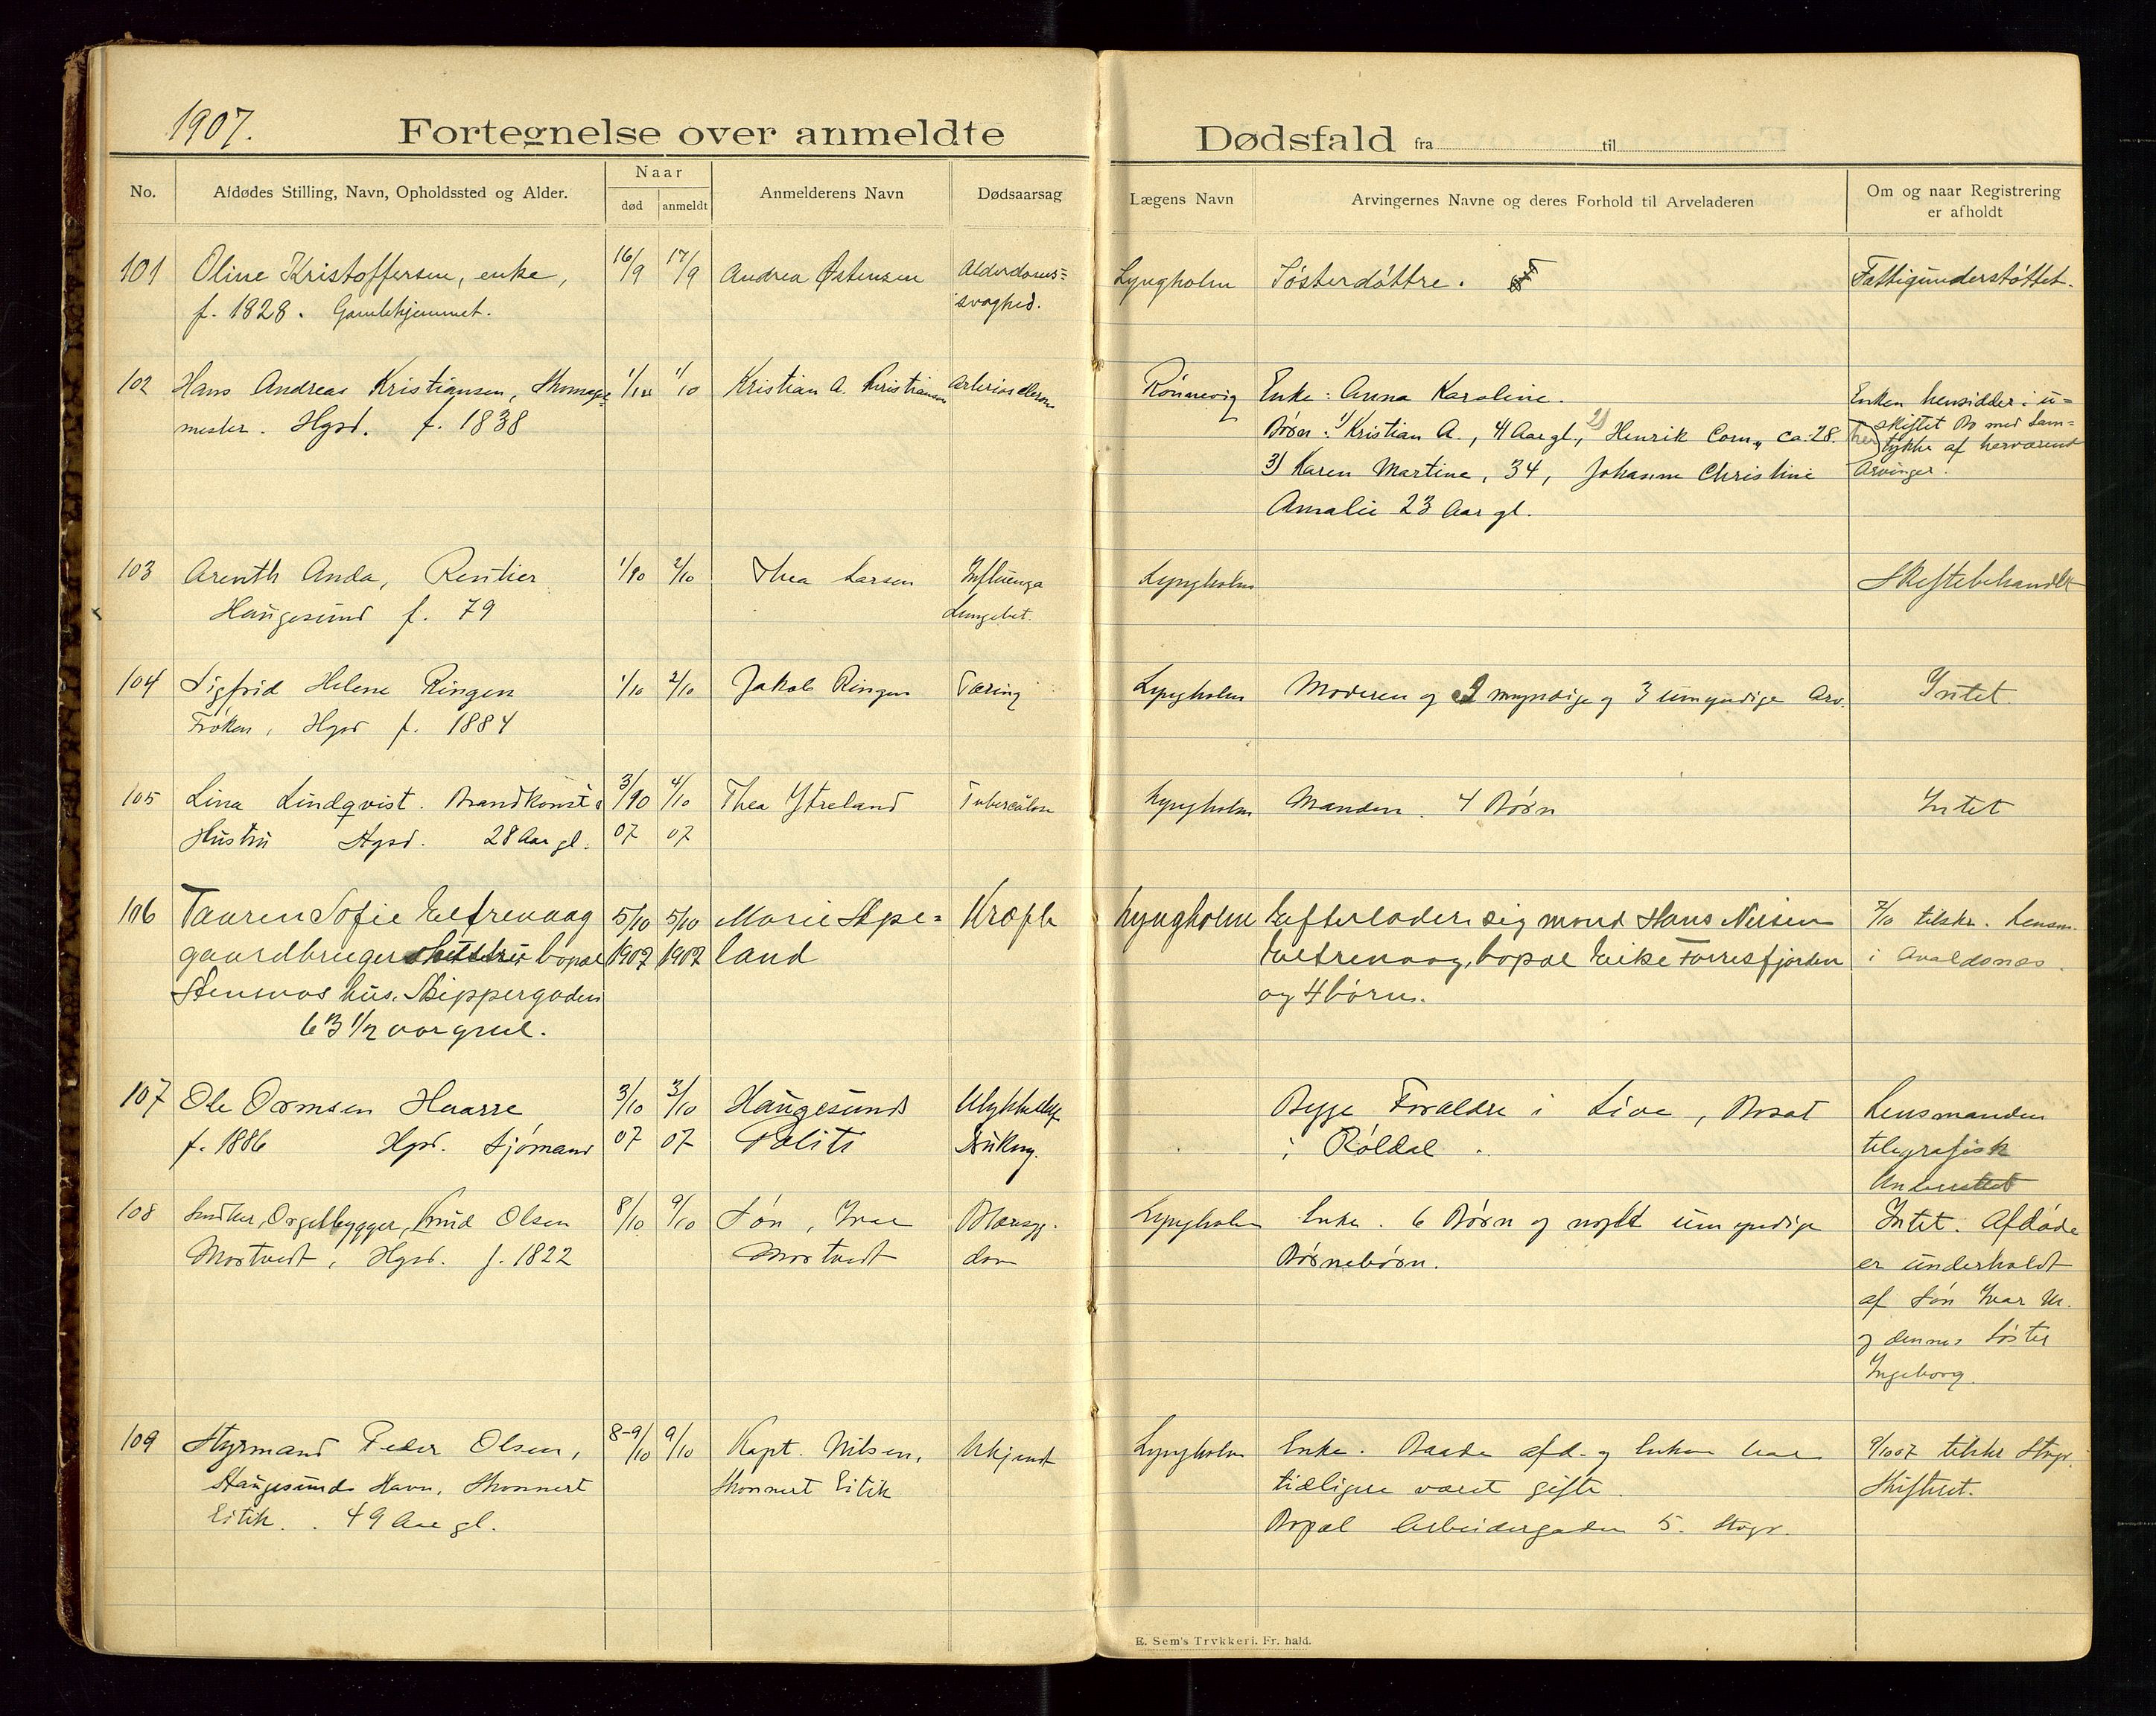 1907.
Fortegnelse over anmeldte Dødsfald fra til
No.
Afdødes Stilling, Navn, Opholdssted og Alder.
Naar
død
anmeldt
Anmelderens Navn
Dødsaarsag
Lægens Navn
Arvingernes Navne og deres Forhold til Arveladeren
Om og naar Registrering
er afholdt
101 Oline Kristoffersen, enke, 16/9 17/9 Andrea Østensen Alderdoms= Lyngholm Søsterdøttre. Fattigunderstøttet.
f. 1828. Gamlehjemmet. svaghed.
102 Hans Andreas Kristiansen, 1/10 1/10 Kristian A. Kristiansen Rönnevig Enke: Anna Karoline. Enken hensidder i u=
mester. Hgsd. f. 1838 Børn: 1) Kristian A., 41 Aar gl, 2) Henrik Corn., ca. 28. skiftet Bo med Sam=
tykke af herværend
3) Karen Martine, 34, Johanne Christine Arvinger.
Amalie 23 Aar gl.
103 Arenth Anda, Rentier 1/10 2/10 Thea Larsen Influenza Lyngholm Skiftebehandlet
Haugesund f. 79 Lungebet.
104 Sigfrid Helene Ringen 1/10 2/10 Jakob Ringen Tæring Lyngholm Moderen og myndige og 3 umyndige Arv. Intet.
Frøken, Hgsd f. 1884
105 Lina Lindqvist. Brandkonst.s 3/10 4/10 Thea Ytreland Tuberculose Lyngholm Manden. 4 Børn Intet
Hustru Hgsd. 28 Aar gl. 07 07
106 Taaren Sofie Eetrevaag 5/10 5/10 Marie Skpe= Kræft Lyngholm Eefterlader sig mand Hans Neisen 7/10 tilskr. Lensm.
gaardbrugershustru bopæl 1907 1907 land Eetrevaag, bopæl Eeike Førresfjorden i Avaldsnes.
Stensnæs hus. Skippergaden og 4 børn.
63 1/2 aar gml.
107 Ole Ormsen Haarre 3/10 3/10 Haugesunds Ulykkestilf Begge Forældre i Live, Bosat Lensmanden
f. 1886 Hgsd. Sjømand 07 07 Politi Drukng. i Røldal. telegrafisk
Underrettet
108 Snedker, Orgelbygger, Knud Olsen 8/10 9/10 Søn, Ivar Blæresyg. Lyngholm Enke. 6 Børn og nogle umyndige Intet. Afdøde
Mostvedt, Hgsd. f. 1822 Mostvedt dom Børnebørn. er underholdt
af Søn Ivar M.
og dennes Søster
Ingeborg.
109 Styrmand Peder Olsen, 8-9/10 9/10 Kapt. Nilsen, Ukjendt Lyngholm Enke. Baade afd. og Enken har 9/10 07 tilskr Stvgr.
Haugesunds Havn, Skonnert Skonnert Eitik tidligere været gifte. Skifteret.
Eitik. 49 Aar gl. Bopæl Arbeidergaden 5. Stvgr.
E. Sem's Trykkeri. Fr. hald.